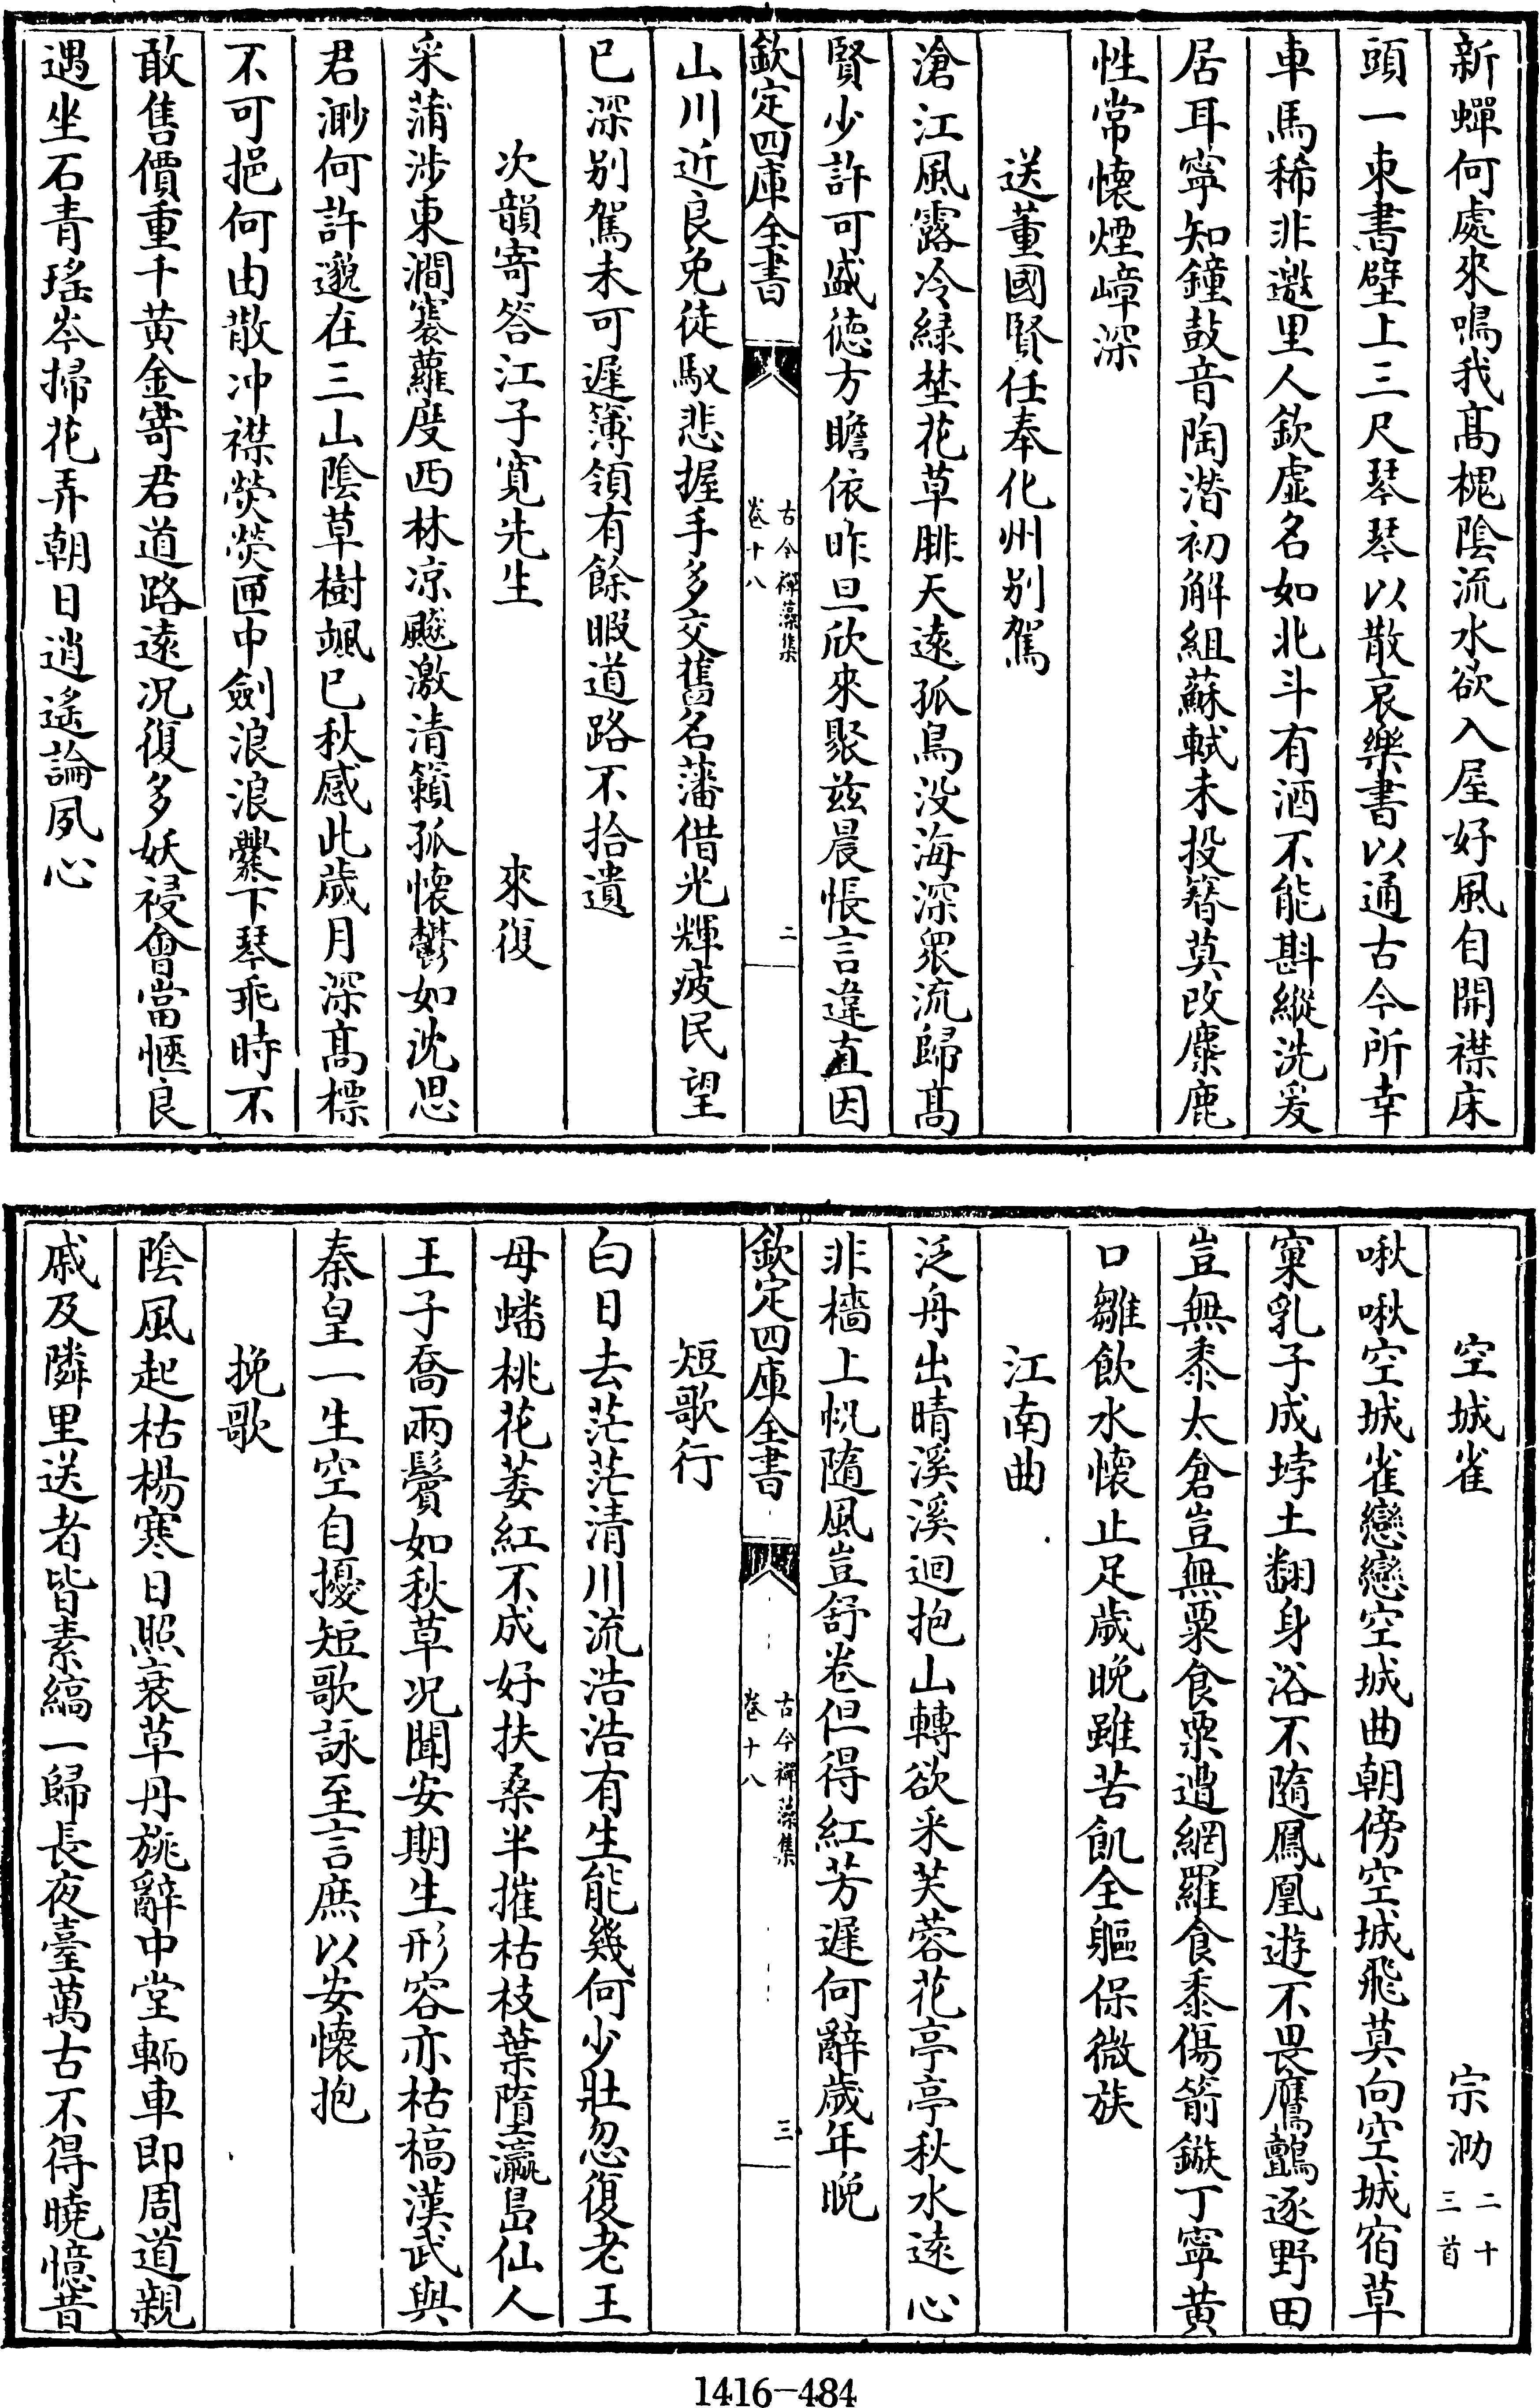 新蟬何處來鳴我髙槐隂流水欲入屋好風自開襟床
頭一束書壁上三尺琴琴以散哀樂書以通古今所幸
車馬稀非邀里人欽虚名如北斗有酒不能斟縱洗爰
居耳寜知鐘鼓音陶潛初解組蘇軾未投簪莫改麋鹿
性常懐煙嶂深
送董國賢任奉化州别駕
滄江風露冷緑埜花草腓天逺孤鳥没海深衆流歸髙
賢少許可盛徳方瞻依昨旦欣來聚兹晨悵言違直因
欽定四庫全書
古今禪藻集
卷十八
二
山川近良免徒馭悲握手多交舊名藩借光輝疲民望
已深别駕未可遲簿領有餘暇道路不拾遺
次韻寄答江子寛先生
來復
采蒲涉東澗褰蘿度西林凉飈激清籟孤懐鬱如沈思
君渺何許邈在三山隂草樹颯已秋感此歲月深髙標
不可挹何由散冲襟熒熒匣中劍浪浪爨下琴乖時不
敢售價重千黄金寄君道路逺况復多妖祲會當愜良
遇坐石青瑤岑掃花弄朝日逍遙論夙心
空城雀
宗泐
二十
三首
啾啾空城雀戀戀空城曲朝傍空城飛莫向空城宿草
窠乳子成㘿土翻身浴不隨鳳凰遊不畏鷹鸇逐野田
豈無黍太倉豈無粟食粟遭網羅食黍傷箭鏃丁寧黄
口雛飲水懐止足歲晚雖苦飢全軀保微族
江南曲
泛舟出晴溪溪迴抱山轉欲采芙蓉花亭亭秋水逺心
非檣上帆隨風豈舒卷但得紅芳遲何辭歲年晚
欽定四庫全書
古今禪藻集
卷十八
三
短歌行
白日去茫茫清川流浩浩有生能幾何少壯忽復老王
母蟠桃花萎紅不成好扶桑半摧枯枝葉墮瀛島仙人
王子喬兩鬢如秋草况聞安期生形容亦枯槁漢武與
秦皇一生空自擾短歌詠至言庶以安懐抱
挽歌
隂風起枯楊寒日照衰草丹旐辭中堂輀車即周道親
戚及隣里送者皆素縞一歸長夜臺萬古不得曉憶昔
1416-484